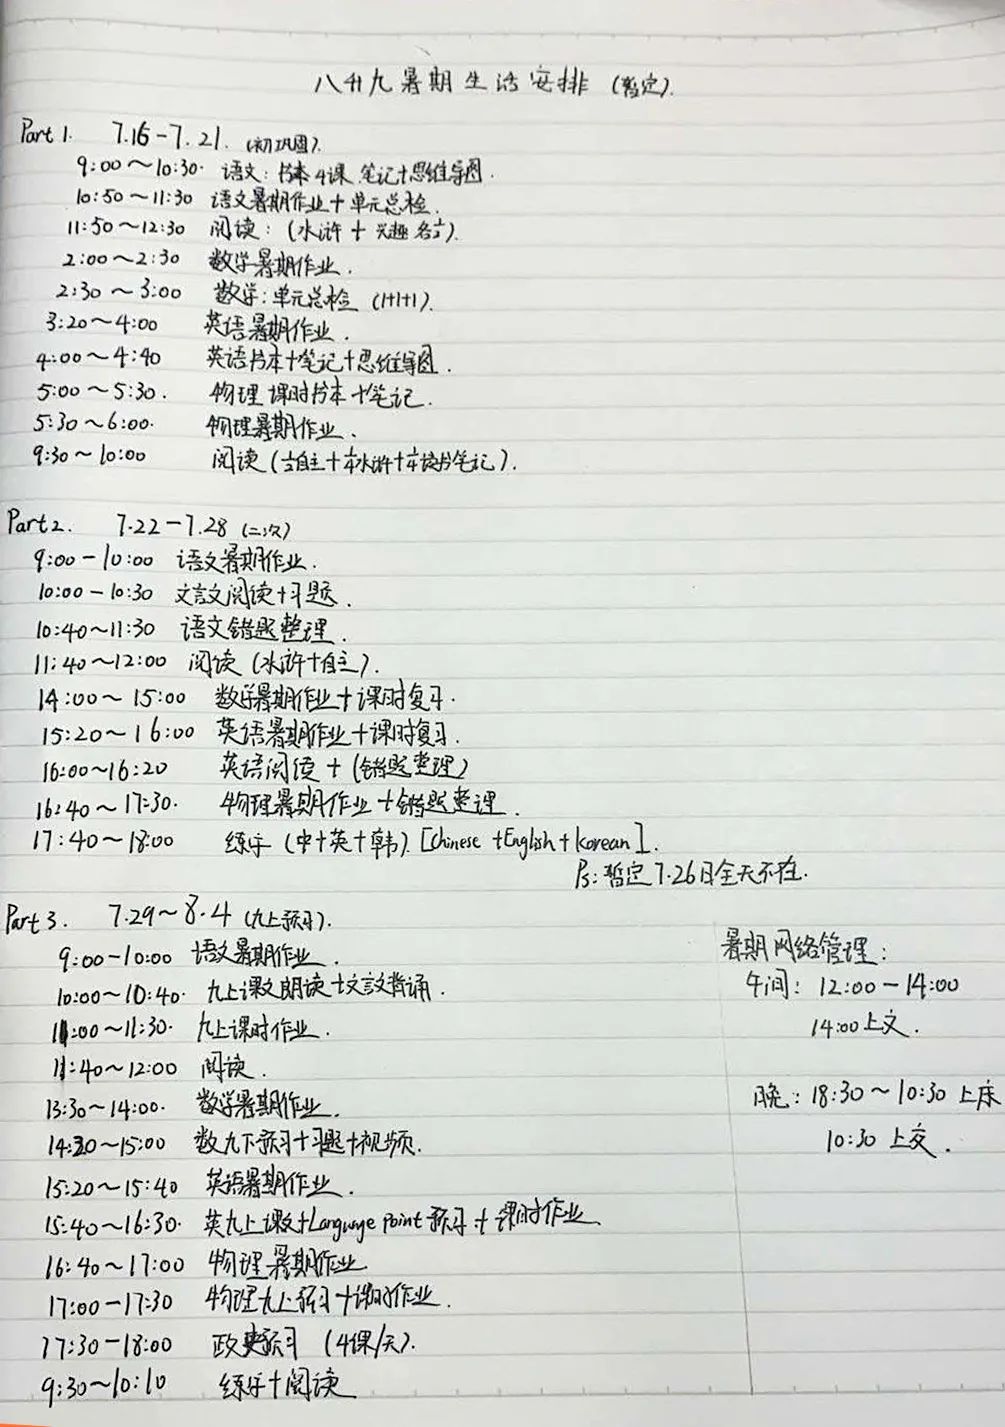 八升九暑期生活安排 (暂定).
Part 1. 7.16-7.21. (初巩固).
9:00~10:30· 语文: 书本4课 笔记+思维导图.
10:50~11:30 语文暑期作业+单元总检.
11:50~12:30 阅读: (水浒 + 兴趣名言).
2:00~2:30 数学暑期作业.
2:30~3:00 数学: 单元总检 (1+1+1).
3:20~4:00 英语暑期作业.
4:00~4:40 英语书本+笔记+思维导图.
5:00~5:30. 物理 课时书本+笔记.
5:30~6:00· 物理暑期作业.
9:30~10:00 阅读 (自主++水浒++读书笔记).
Part 2. 7.22-7.28 (二次)
9:00-10:00 语文暑期作业.
10:00-10:30 文言文阅读+习题.
10:40~11:30 语文错题整理.
11:40~12:00 阅读 (水浒+自主).
14:00~15:00 数学暑期作业+课时复习.
15:20~16:00 英语暑期作业+课时复习.
16:00~16:20 英语阅读 + (错题整理)
16:40~17:30· 物理暑期作业+错题整理.
17:40~18:00 练字 (中+英+韩). [Chinese +English + Korean].
Ps: 暂定7.26日全天不在.
Part 3. 7.29~8.4 (九上预习).
9:00-10:00 语文暑期作业.
10:00~10:40· 九上课文朗读+文言文背诵.
11:00~11:30· 九上课时作业.
11:40~12:00 阅读.
13:30~14:00· 数学暑期作业.
14:20~15:00 数九下预习+习题+视频.
15:20~15:40 英语暑期作业.
15:40~16:30· 英九上课文+Language Point 预习 + 课时作业.
16:40~17:00 物理暑期作业.
17:00-17:30 物理九上预习+课时作业.
17:30-18:00 政史预习 (4课/天).
9:30~10:10 练字+阅读
暑期网络管理:
午间: 12:00-14:00
14:00上交.
晚: 18:30~10:30 上床
10:30 上交.